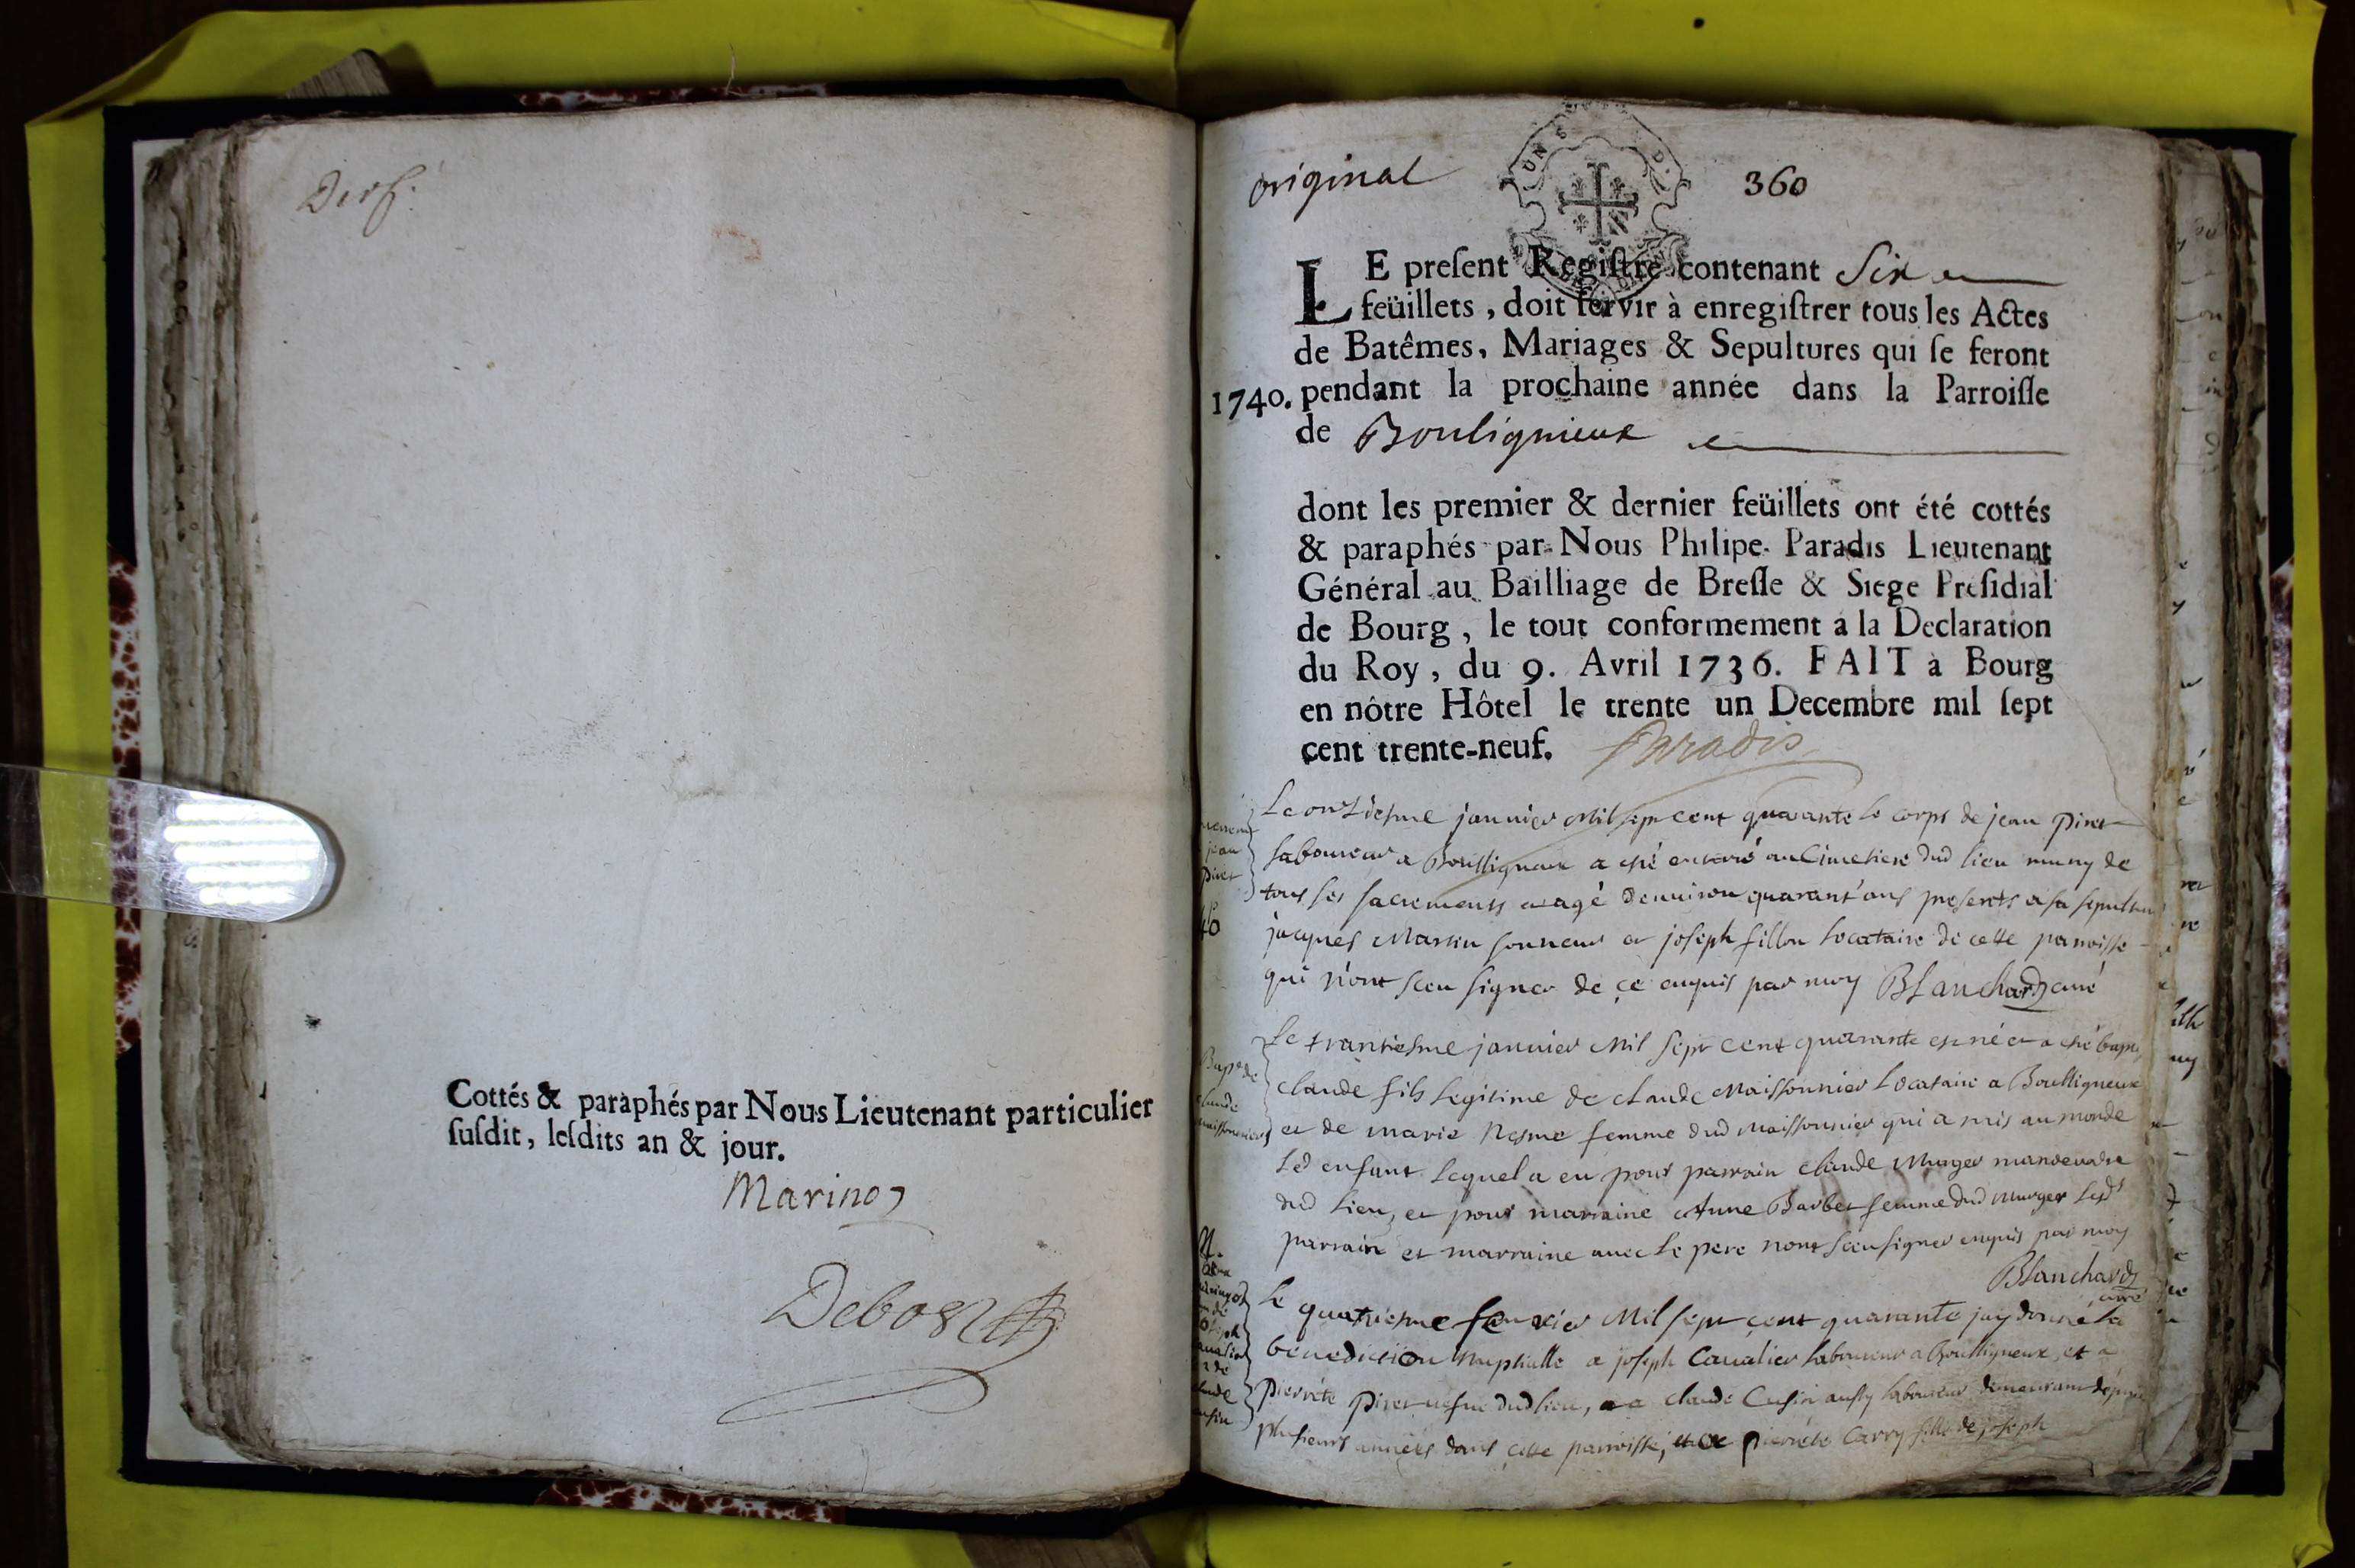 Cottés & paraphés par Nous Lieutenant particulier
ſuſdit, leſdits an & jour.
Marino
Debost
original
360
LE preſent Regiſtre contenant Six
feüillets, doit ſervir à enregiſtrer tous les Actes
de Batêmes, Mariages & Sepultures qui ſe feront
1740. pendant la prochaine année dans la Parroiſſe
de Bouligneux
dont les premier & dernier feüillets ont été cottés
& paraphés par Nous Philipe Paradis Lieutenant
Général au Bailliage de Breſſe & Siege Preſidial
de Bourg, le tout conformement à la Declaration
du Roy, du 9. Avril 1736. FAIT à Bourg
en nôtre Hôtel le trente un Decembre mil ſept
cent trente-neuf. Paradis
jean
piret
Le onziesme janvier Mil sept cent quarante le corps de jean piret
laboureur a Boulligneux a esté enterré au Cimetiere dud lieu muny de
tous ses sacrements et agé denuiron quarant'ans presents a sa sepulture
jacques Martin sonneur et joseph fillon locataire de cette parroisse
qui n'ont sceu signer de ce enquis par moy Blanchard curé
Bap.e de
claude
maissonnier
Le trantiesme janvier Mil sept cent quarante est né et a esté bapt
claude fils legitime de claude Maissonnier Locataire a Boulligneux
et de marie Nesme femme dud Maissonnier qui a mis au monde
led enfant lequel a eu pour parrain claude Murger
dud lieu, et pour marraine Anne Barbet femme dud murger lesd
parrain et marraine avec le pere nont sceu signer enquis par moy
Blanchard
curé
Le quatriesme feuvrier Mil sept cent quarante jay donné la
benediction nuptialle a joseph Cavalier laboureur a Boulligneux, et a
pierrete piret dud lieu, a claude Cusin aussy laboureur demeurant depuis
plusieurs années dans cette parroisse, et a pierrete Carry fille de joseph